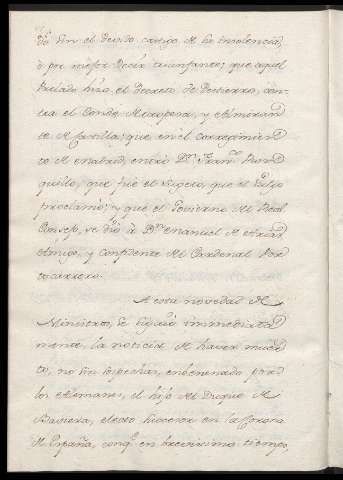 do sin el devido castigo de la insolencia,
ò por mejor decir triunfante; que aquel
Prelado hizo el decreto de destierro, con-
tra el Conde de Oropesa, y Almirante
de Castilla; que en el corregimien-
to de Madrid, entrò Dn. Franco. Ron-
quillo, que fuè el sugeto, que el Vulgo
proclamò; y que el Govierno del Real
Consejo, se diò à Dn. Manuel de Arias
Amigo, y confidente del Cardenal Por-
tocarrero.
A esta novedad de
Ministros, se siguiò immediata-
mente, la noticia de haver muer-
to, no sin sospechas, enbenenado por
los Alemanes, el hijo del Duque de
Baviera, electo succesor en la Corona
de España, conqe. en brevissimo tiempo,